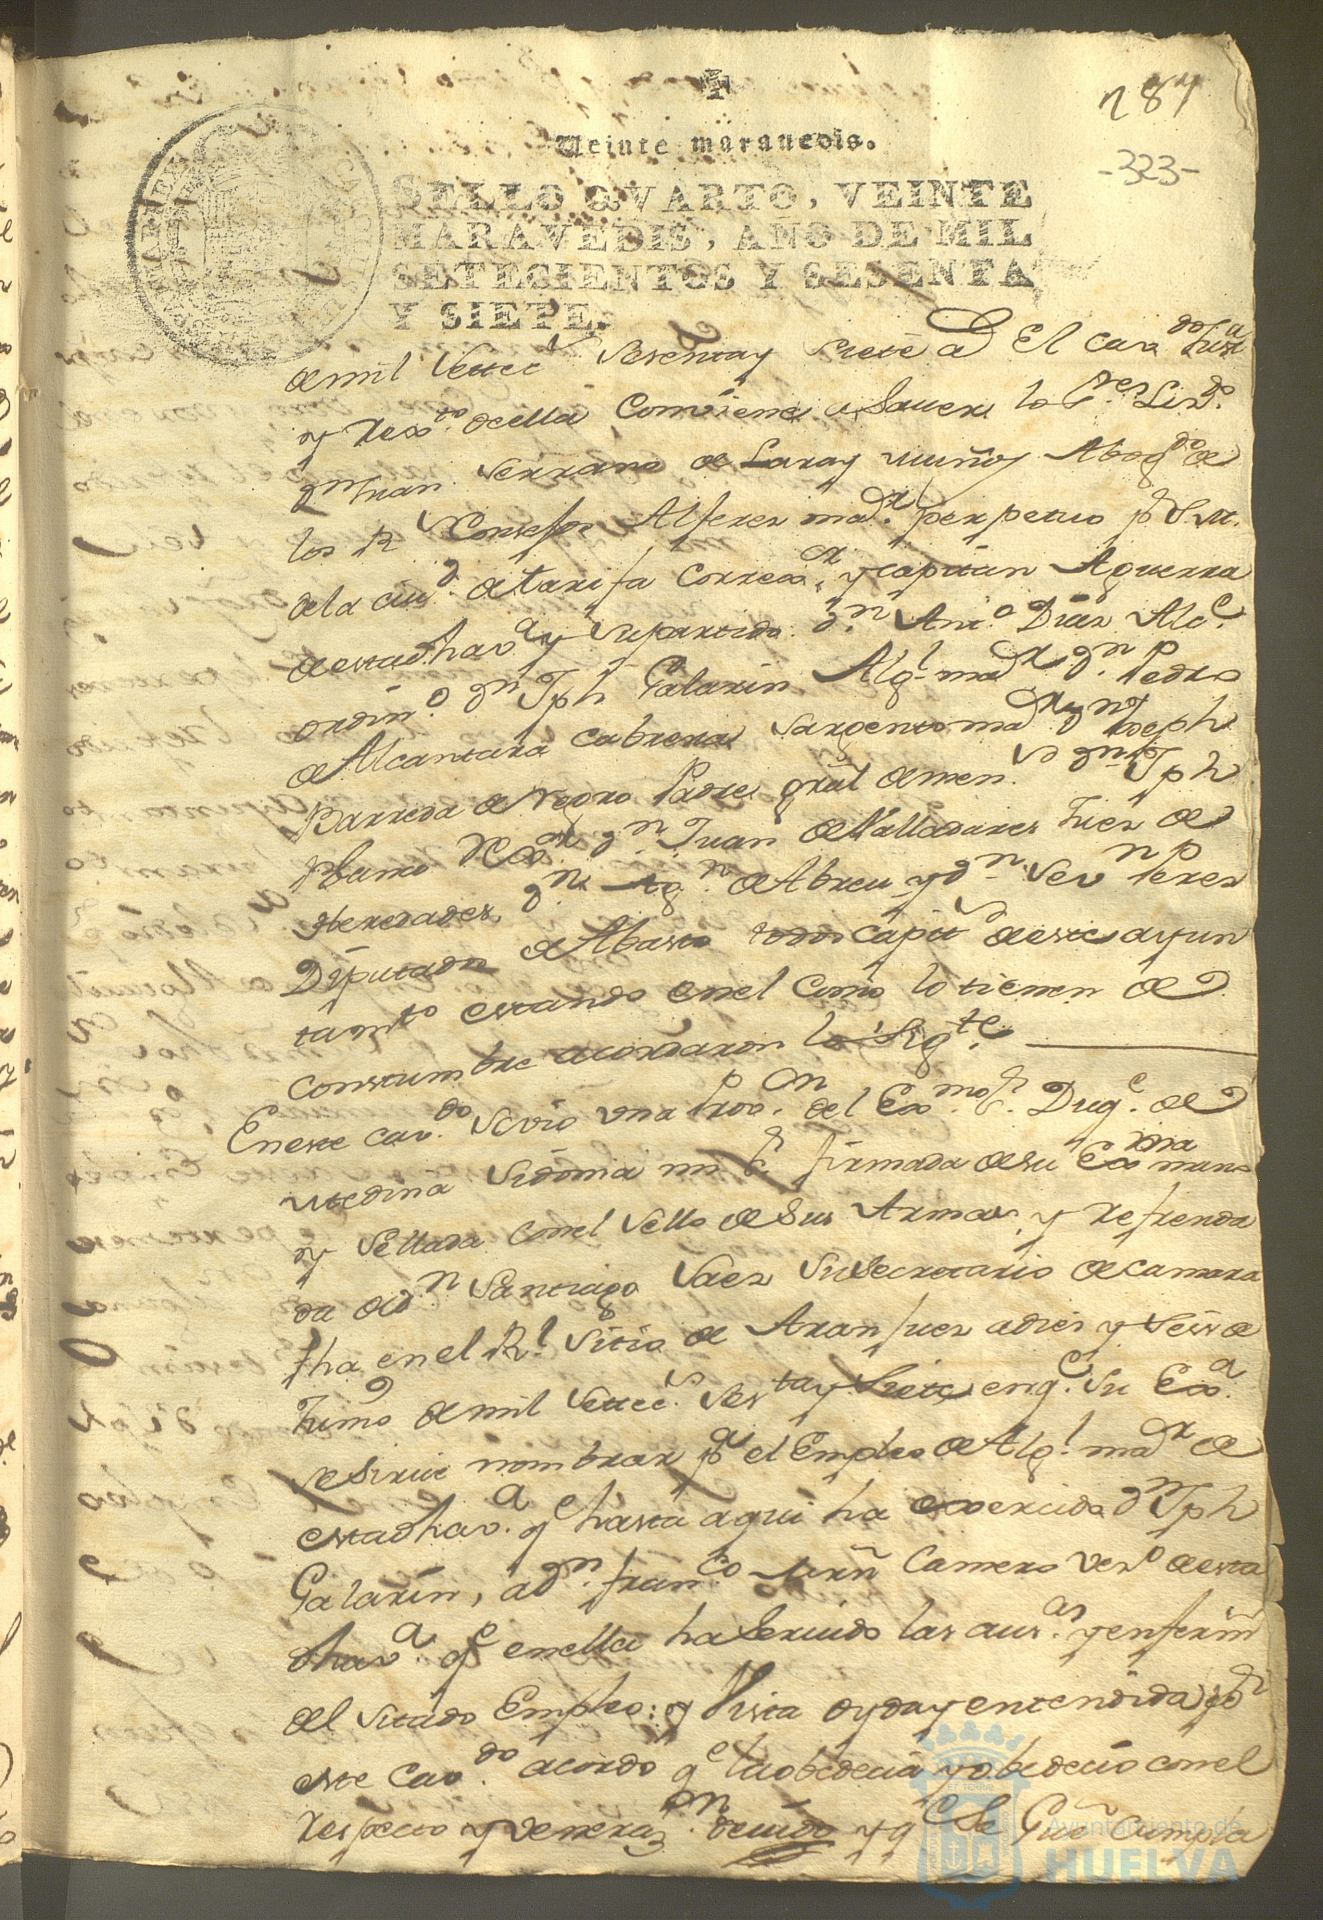 287
-323-
Veinte maravedis.
SELLO QVARTO, VEINTE
MARAVEDIS, AÑO DE MIL
SETECIENTOS Y SESENTA
Y SIETE.
de mil settec.s sesenta y siete a.s El cav.do Just.a
y rex.to de ella combiene a saver los S.res Liz.do
d.n Juan Serrano de Lara y Muñoz Abog.do de
los R.s Consejos Alferez ma.r perpetuo p.r S.M.
de la ciu.d de tarifa correx.r y capitan Aguerra
de esta dha v.a y su partido d.n Ant.o Diaz Alc.e
ordin.o d.n Jph Galarin Alg.l ma.r d.n Pedro
de Alcantara Cabrera Sargento ma.r d.n Joseph
Barreda de Negro Padre gral de men.s d.n Jph
d.n Juan de Valladares Juez de
Heredades, d.n Ag.n de Abreu y d.n Sev.n Perez
Diputado de Abasto todos capit.s de este ayun
tam.to estando en el como lo tienen de
constumbre acordaron lo sig.te
En este cav.do se vio una Prov.on del Ex.mo S.r Duq.e de
Medina Sidonia mi S.r firmada de su Ex.ma mano
y sellada con el sello de sus Armas, y refrenda
da de d.n Santiago Saez su secretario de camara
fha en el R.l Sitio de Aranjuez a diez y seis de
Junio de mil settec.s ses.ta y siete en q.e su Ex.a
se sirve nombrar p.a el Empleo de Alg.l ma.r de
esta dha v.a q.e hasta aqui ha exercido d.n Jph
Galarin, a d.n Fran.co Marñ Camero vez.o de esta
dha v.a q.e en ella ha servido las aus.as y enferm
del sitado Empleo: y Vista oyda y entendida p.r
este Cav.do acordo q.e la obedecia y obedecio con el
respecto y veneraz.on devido y q.e Se Gue Cumpla
Ayuntamiento de
HUELVA